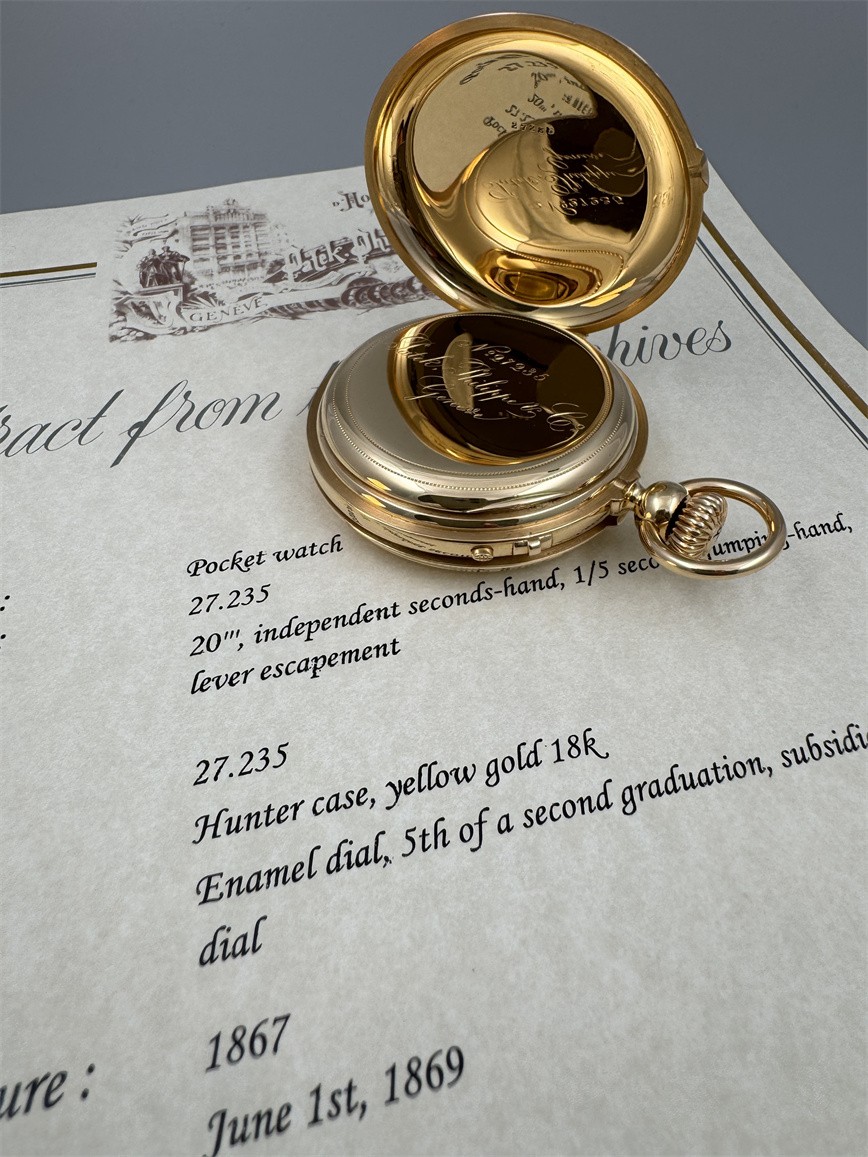 GENEVE
ract from hives
Pocket watch
27.235
20''', independent seconds-hand, 1/5 seco umping-hand,
lever escapement
27.235
Hunter case, yellow gold 18k
Enamel dial, 5th of a second graduation, subsidi
dial
1867
ure :
June 1st, 1869
No 27235
Patek Philippe & Co
Genève